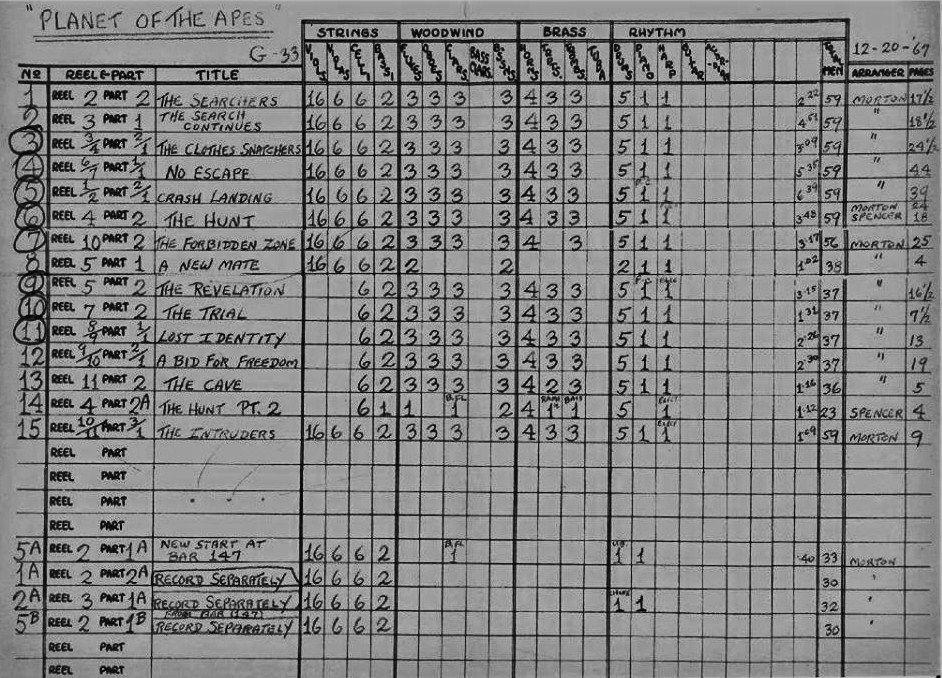 "PLANET OF THE APES"
G-33
STRINGS WOODWIND BRASS RHYTHM
12-20-'67
Nº REEL & PART TITLE VIOLS VIOLAS CELLI BASSI FLUTES OBOES CLARS. BASS CLARS. BSSNS HORNS TPTS. TBONES TUBA DRUMS PIANO HARP GUITAR TOTAL MEN ARRANGER PAGES
1 REEL 2 PART 2 THE SEARCHERS 16 6 6 2 3 3 3 3 4 3 3 5 1 1 2 22 59 MORTON 17 1/2
2 REEL 3 PART 1 THE SEARCH CONTINUES 16 6 6 2 3 3 3 3 4 3 3 5 1 1 4 51 59 " 18 1/2
3 REEL 3/4 PART 2/1 THE CLOTHES SNATCHERS 16 6 6 2 3 3 3 3 4 3 3 5 1 1 3 09 59 " 24 1/2
4 REEL 6/7 PART 1/1 NO ESCAPE 16 6 6 2 3 3 3 3 4 3 3 5 1 1 5 35 59 " 44
5 REEL 1/2 PART 2/1 CRASH LANDING 16 6 6 2 3 3 3 3 4 3 3 5 1 1 6 39 59 " 39
6 REEL 4 PART 2 THE HUNT 16 6 6 2 3 3 3 3 4 3 3 5 1 1 3 48 59 MORTON 24 SPENCER 18
7 REEL 10 PART 2 THE FORBIDDEN ZONE 16 6 6 2 3 3 3 3 4 3 5 1 1 3 17 56 MORTON 25
8 REEL 5 PART 1 A NEW MATE 16 6 6 2 2 2 2 1 1 1 02 38 " 4
9 REEL 5 PART 2 THE REVELATION 6 2 3 3 3 3 4 3 3 5 1 1 3 15 37 " 16 1/2
10 REEL 7 PART 2 THE TRIAL 6 2 3 3 3 3 4 3 3 5 1 1 1 31 37 " 7 1/2
11 REEL 8/9 PART 1/1 LOST IDENTITY 6 2 3 3 3 3 4 3 3 5 1 1 2 26 37 " 13
12 REEL 9/10 PART 2/1 A BID FOR FREEDOM 6 2 3 3 3 3 4 3 3 5 1 1 2 30 37 " 19
13 REEL 11 PART 2 THE CAVE 6 2 3 3 3 3 4 2 3 5 1 1 1 16 36 " 5
14 REEL 4 PART 2A THE HUNT PT. 2 6 1 1 B.FL 1 2 4 1 1 5 1 1 12 23 SPENCER 4
15 REEL 10/11 PART 3/1 THE INTRUDERS 16 6 6 2 3 3 3 3 4 3 3 5 1 1 1 09 59 MORTON 9
REEL PART
REEL PART
REEL PART
REEL PART
5A REEL 2 PART 1A NEW START AT BAR 147 16 6 6 2 B.FL 1 1 1 40 33 MORTON
1A REEL 2 PART 2A RECORD SEPARATELY 16 6 6 2 30 "
2A REEL 3 PART 1A RECORD SEPARATELY 16 6 6 2 1 1 32 "
5B REEL 2 PART 1B FROM BAR (147) RECORD SEPARATELY 16 6 6 2 30 "
REEL PART
REEL PART